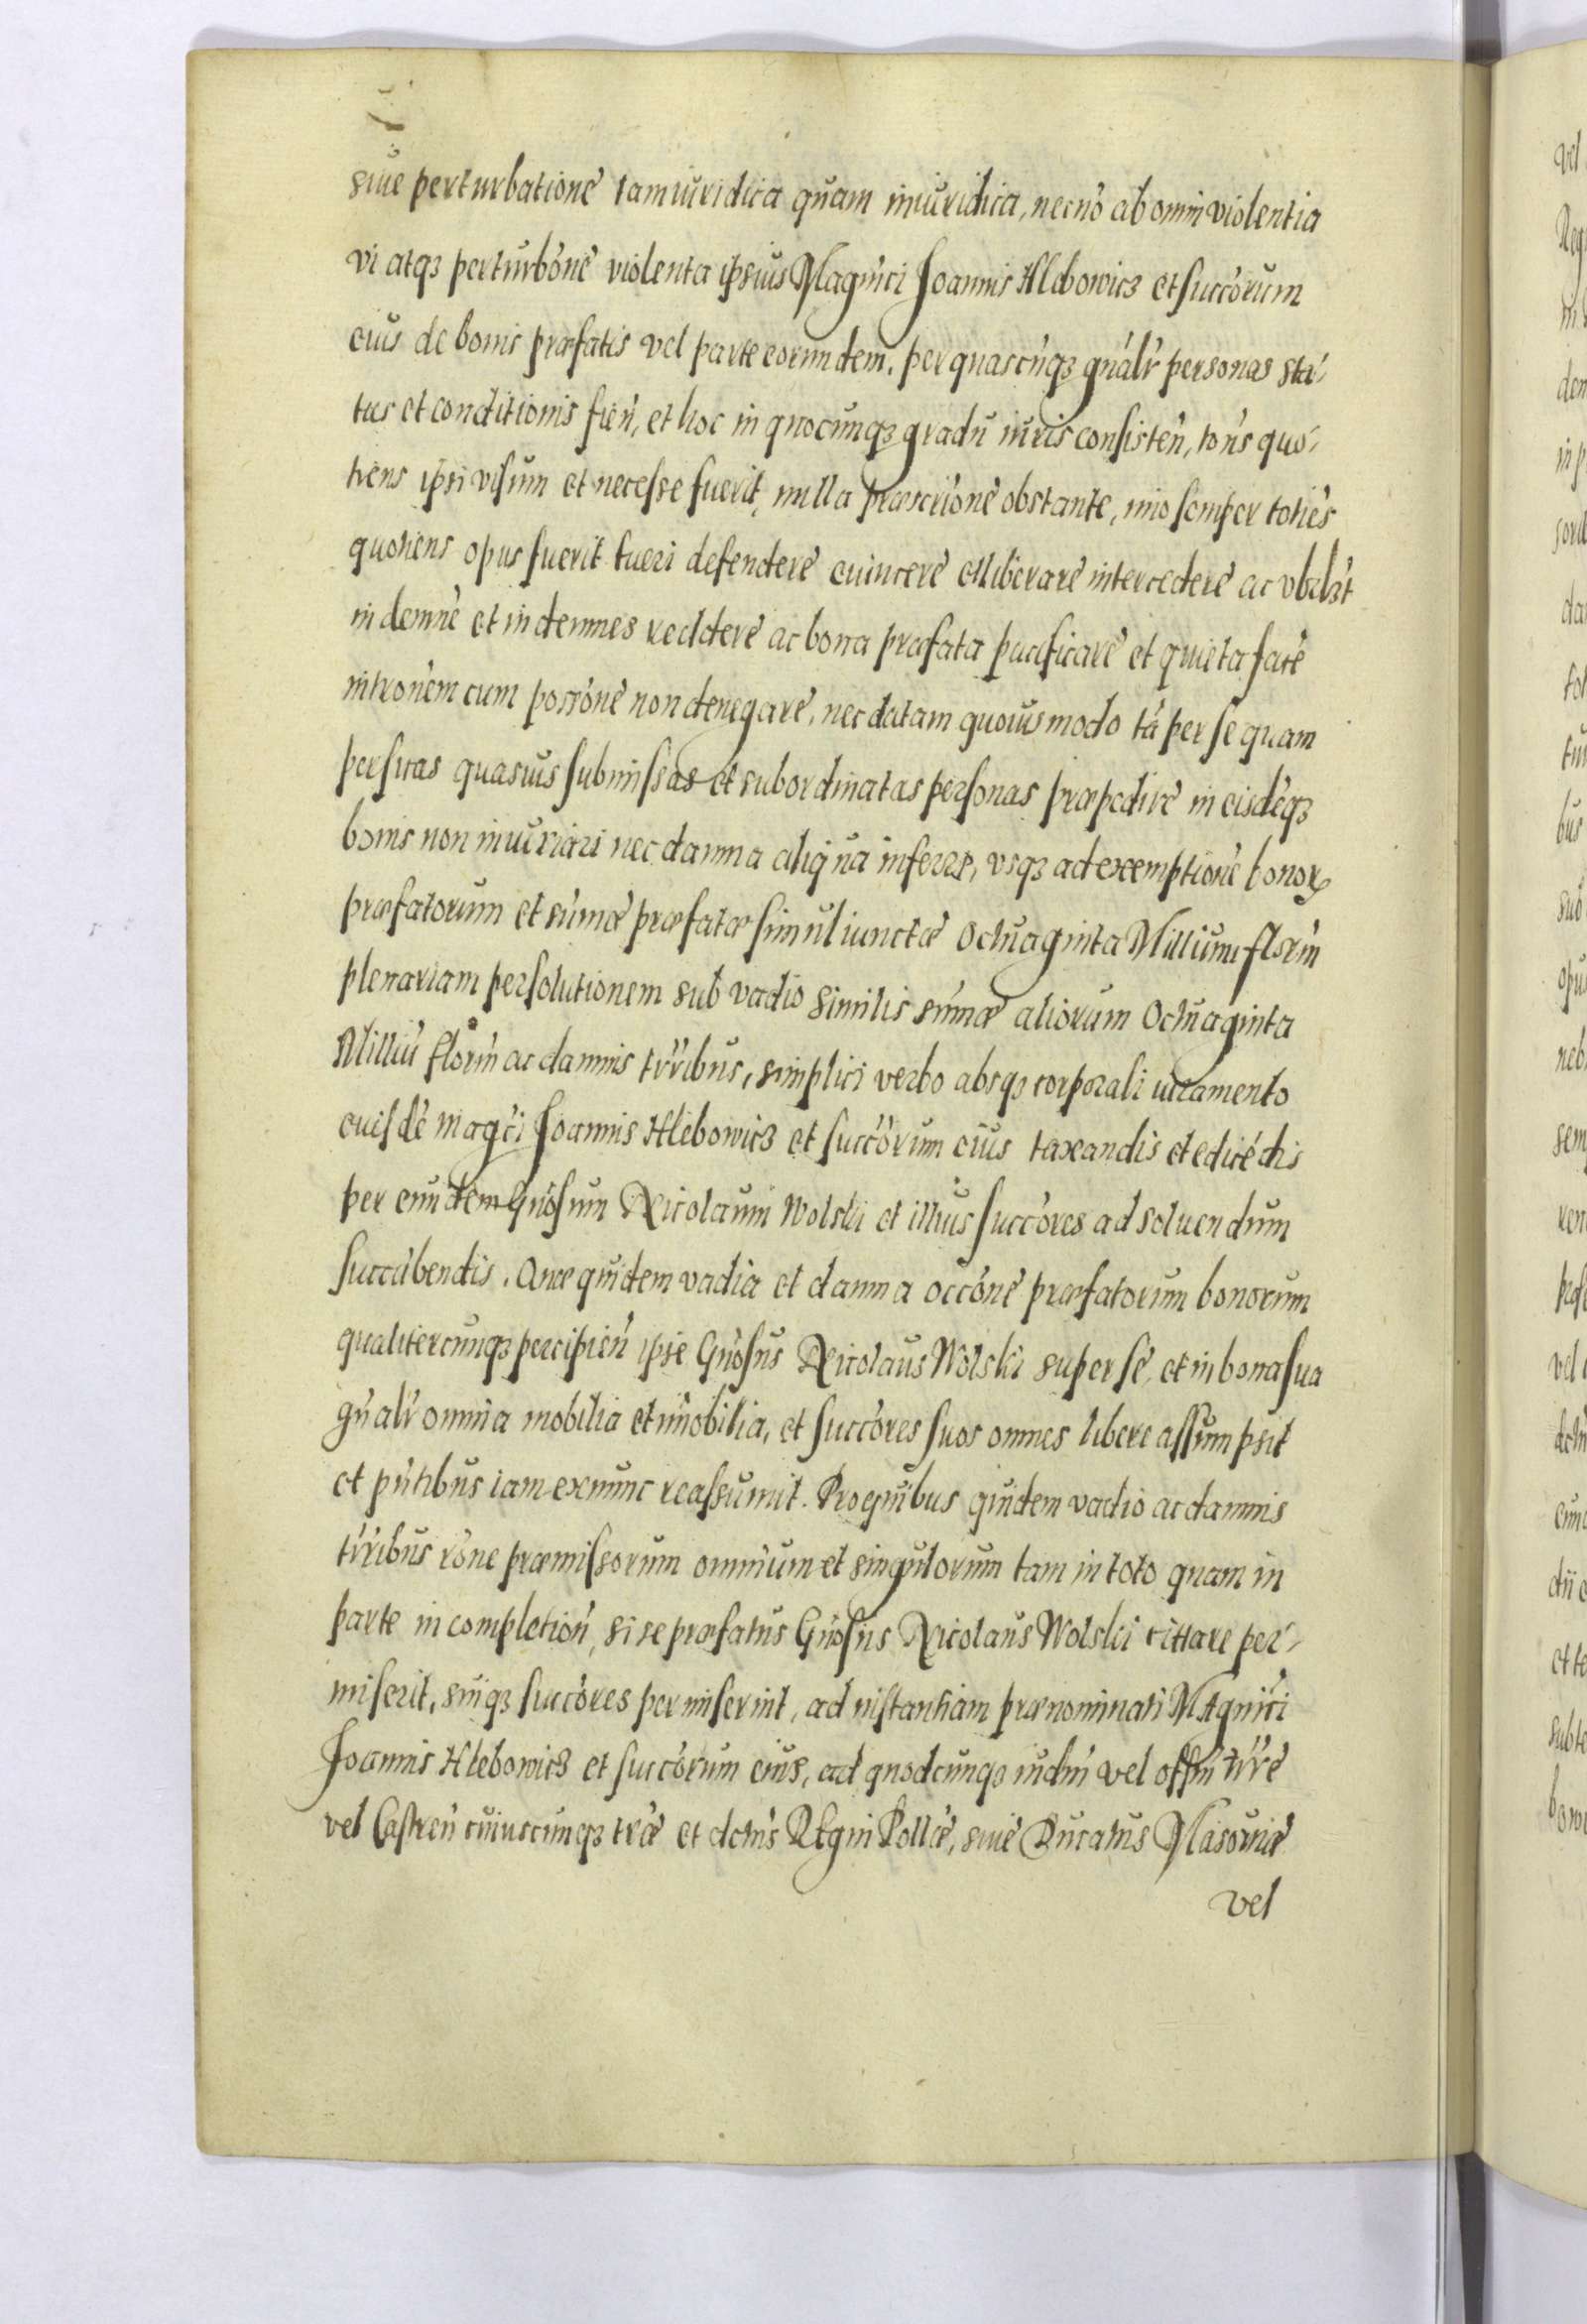 siue perturbatione tam iuridica quam iniuridica, necnō ab omni violentia
vi atq3 perturbōne violenta ipsius Magnīci Joannis Hlebowicz et succōrum
eius de bonis præfatis vel parte eorundem, per quascūq3 gnālr personas sta-
tus et conditionis fien, et hoc in quocunq3 gradu iuris consisten, tons quo-
tiens ipsi visum et necesse fuerit, nulla præscriōne obstante, imo semper toties
quotiens opus fuerit tueri defendere euincere et liberare intercedere ac
indemne et indemnes reddere ac bona præfata pacificare et quieta facē
intronēm cum possōne non denegare, nec datam quouismodo tā per se quam
per suas quasuis submissas et subordinatas personas præpedire in eisdēq3
bonis non iniuriari nec damna aliqua inferre, vsq3 ad exemptione bonor
præfatorum et sūmæ præfatæ simul iunctæ Octuaginta Millium florīn
plenariam persolutionem sub vadio similis sūmæ aliorum Octuaginta
Milliū florīn ac damnis trribus, simplici verbo absq3 corporali iuramento
eiusdē magci Joannis Hlebowicz et succōrum eius taxandis et edicēdis
per eundem Gnōsum Nicolaum Wolski et illius succōres ad soluendum
succūbendis. Quæ quidem vadia et damna occōne præfatorum bonorum
qualitercunq3 percipien ipse Gnōsus Nicolaus Wolski super se, et in bona sua
gnālr omnia mobilia et īmobilia, et succōres suos omnes libere assumpsit
et pntibus iam exnunc reassumit. Pro quibus quidem vadio ac damnis
trribus rōne præmissorum omnium et singulorum tam in toto quam in
parte in completion, si se præfatus Gnōsus Nicolaus Wolski cittare per-
miserit, suiq3 succōres permiserint, ad instantiam prænominati Magnīci
Joannis Hlebowicz et succōrum eius, ad quodcunq3 iudm vel offm trre
vel Castren cuiuscunq3 træ et dctus Regni Pollæ, siue Ducatus Masouiæ
vel